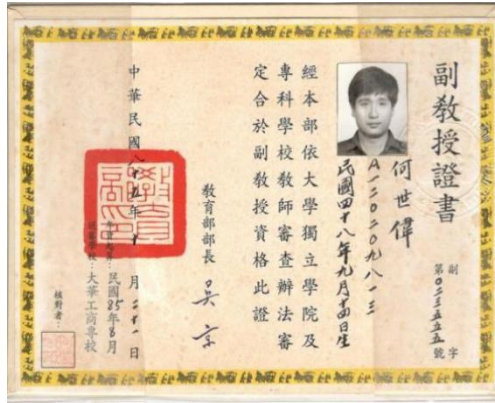 副教授證書
副字
第〇二三五五五號
何世偉
A一二〇二〇九八一三
民國四十八年九月十四日生
經本部依大學獨立學院及
專科學校教師審查辦法審
定合於副教授資格此證
教育部部長 吳京
中華民國八十五年十一月二十一日
民國85年8月
大華工商專校
核對者：